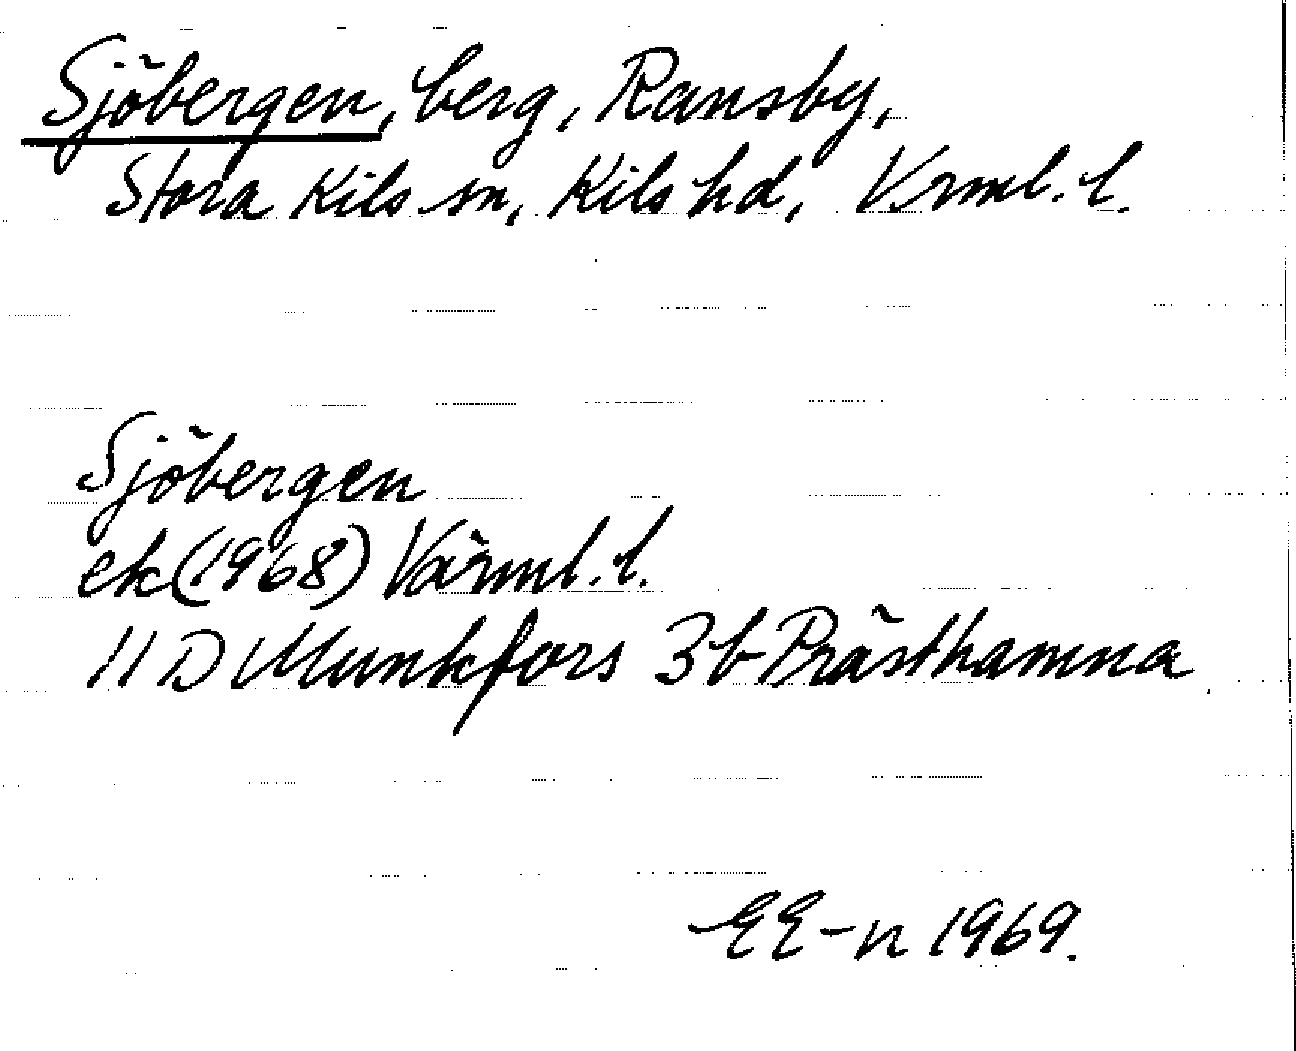 Sjöbergen, berg, Ransby,
Stora Kils sn, Kils hd, Vrml. l.
Sjöbergen
ek (1968) Värml. l.
11 D Munkfors 3b Prästhamna
EE-n 1969.